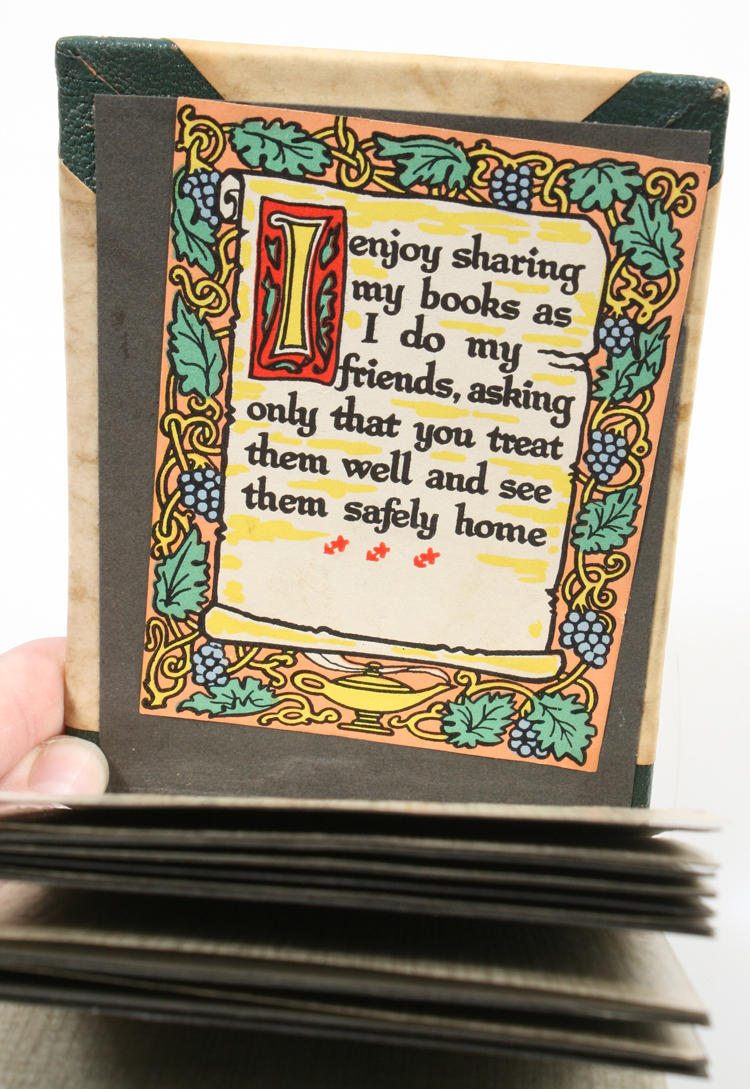 I enjoy sharing
my books as
I do my
friends, asking
only that you treat
them well and see
them safely home